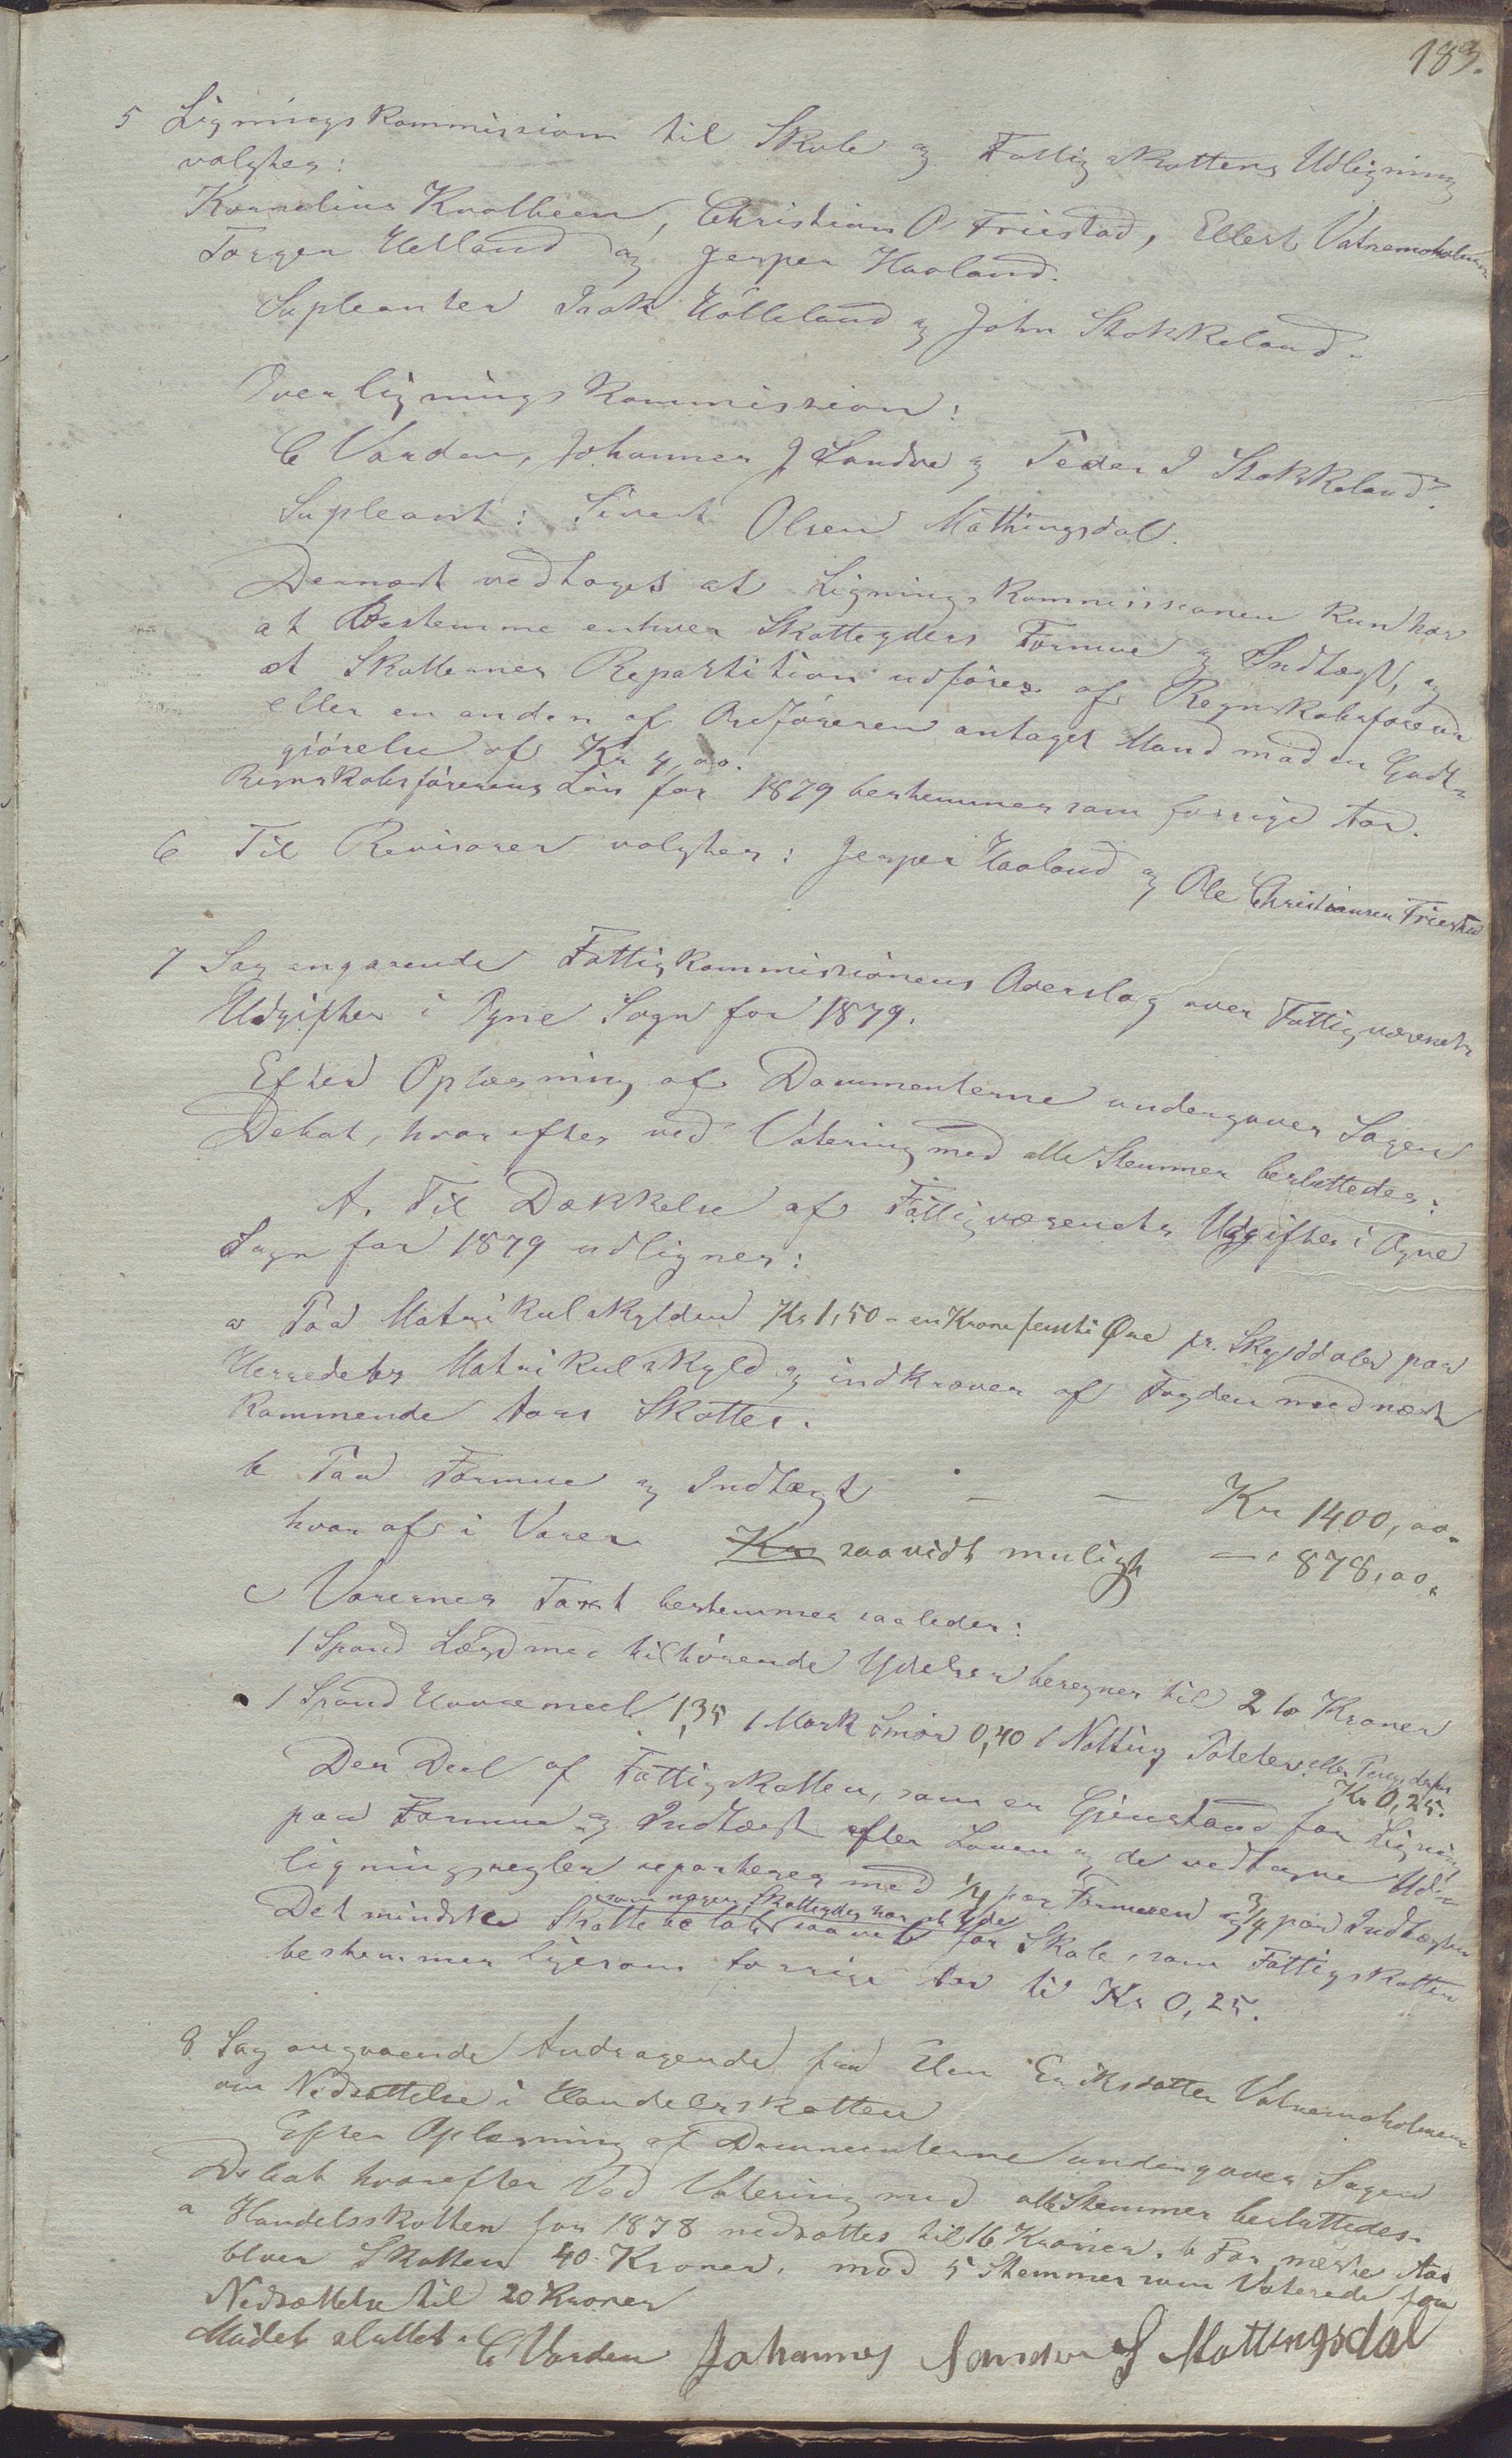 183.
5 Ligningskommission til Skole og Fattigskattens Udligning
valgtes:
Kornelius Kvalbeen, Christian O. Friestad, Ellert Vatnemoholmen
Torger Helland og Jesper Haaland.
Supleanter Isak Hölleland og John Stokkeland.
Overligningskommission:
C Varden, Johannes J Sandve og Peder I Stokkeland.
Supleant: Sivert Olsen Mattingsdal.
Dernæst vedtoges at Ligningskommissionen kun har
at Bestemme enhver Skatteyders Formue og Indtægt, og
at Skatternes Repartition udføres af Regnskabsføreren
eller en anden af Ordføreren antaget Mand mod en Godt-
giörelse af Kr 4,00.
Regnskabsförerens Lön for 1879 bestemmes som forrige Aar.
6 Til Revisorer valgtes: Jesper Haaland og Ole Christiansen Friestad
7 Sag angaaende Fattigkommissionens Overslag over Fattigvæsenets
Udgifter i Ogne Sogn for 1879.
Efter Oplæsning af Documenterne undergaves Sagen
Debat, hvorefter ved Votering med alle Stemmer besluttedes:
A. Til Dækkelse af Fattigvæsenets Udgifter i Ogne
Sogn for 1879 udlignes:
a Paa Matrikulskylden Kr 1,50 - en Krone femti Øre pr. Skylddaler paa
Herredets Matrikulskyld og indkræves af Fogden med næst
kommende Aars Skatter.
b Paa Formue og Indtægt — — Kr 1400,00.
hvoraf i Varer Kr saavidt muligt — " 878,00.
c Varernes Taxt bestemmes saaledes:
1 Spand Lægd med tilhörende Ydelser beregnes til 2 to Kroner
1 Spand Havremeel 1,35 1 Mark Smör 0,40 1 Notting Poteter eller Penge derfor
Kr 0,25.
Den Deel af Fattigskatten, som er Gjenstand for Ligning
paa Formue og Indtægt efter Loven og de vedtagne Ud-
ligningsregler reparteres med 1/4 paa Formuen og 3/4 paa Indtægten
som nogen Skatteyder har at yde
Det mindste Skattebelöb saavel for Skole, som Fattigskatten
bestemmes ligesom forrige Aar til Kr 0,25.
8 Sag angaaende Andragende fra Eriksdatter Vatnemoholmen
om Nedsættelse i Handelsskatten
Efter Oplæsning af Documenterne undergaves Sagen
Debat hvorefter Ved Votering med alle Stemmer besluttedes.
a Handelsskatten for 1878 nedsættes til 16 Kroner. b For næste Aar
bliver Skatten 40 Kroner. mod 5 Stemmer som Voterede for
Nedsættelse til 20 Kroner
Mödet sluttet. C Varden Johannes Sandve S Mattingsdal